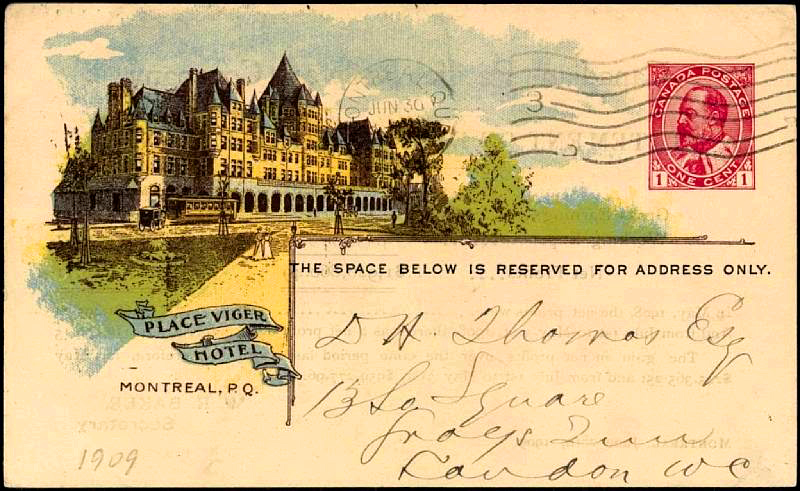 CANADA POSTAGE
1 ONE CENT 1
JUN 30
3
THE SPACE BELOW IS RESERVED FOR ADDRESS ONLY.
PLACE VIGER
HOTEL
MONTREAL, P.Q.
D H Thomas Esq
13 So Square
Grays Inn
London WC
1909